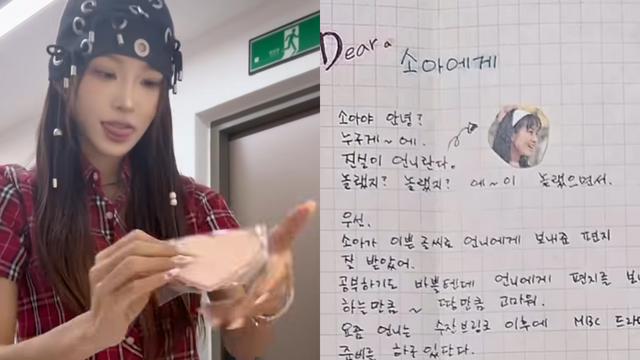 Dear
소아에게
소아야 안녕?
누구게~에.
진실이 언니란다.
놀랬지? 놀랬지? 에~이 놀랬으면서.
우선,
소아가 이쁜 글씨로 언니에게 보내준 편지
잘 받았어.
공부하기도 바쁠텐데 언니에게 편지를 보
하는만큼~ 땅만큼 고마워.
요즘 언니는 수진브린크 이후에 MBC 드라
준비를 하구 있단다.